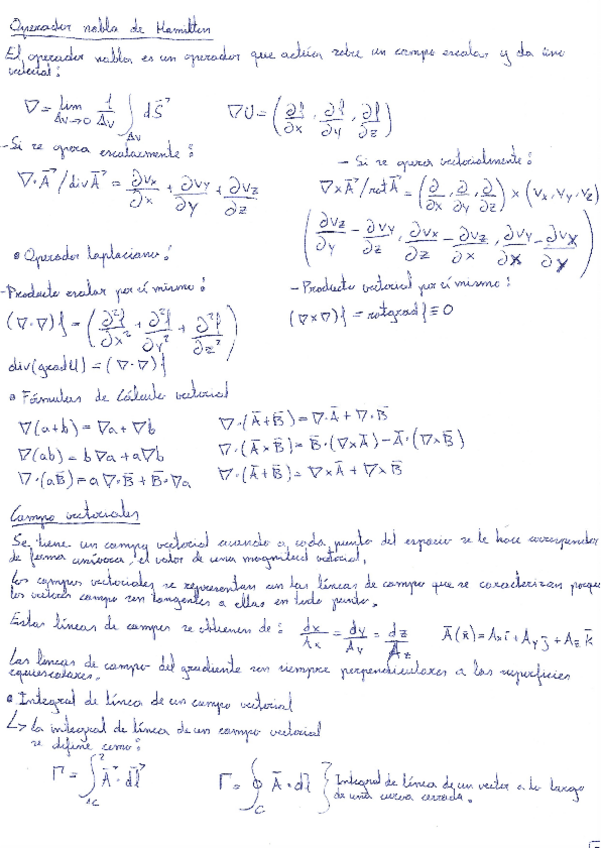 Operador nabla de Hamilton
El operador nabla es un operador que actúa sobre un campo escalar y da uno
vectorial:
∇ = lim_{ΔV→0} 1/ΔV ∫_{ΔV} dS⃗    ∇U = (∂f/∂x, ∂f/∂y, ∂f/∂z)
- Si se opera escalarmente:
- Si se opera vectorialmente:
∇·A⃗ / div A⃗ = ∂Vx/∂x + ∂Vy/∂y + ∂Vz/∂z
∇×A⃗ / rot A⃗ = (∂/∂x, ∂/∂y, ∂/∂z) × (Vx, Vy, Vz)
(∂Vz/∂y - ∂Vy/∂z, ∂Vx/∂z - ∂Vz/∂x, ∂Vy/∂x - ∂Vx/∂y)
• Operador laplaciano:
- Producto escalar por sí mismo:
- Producto vectorial por sí mismo:
(∇·∇)f = (∂²f/∂x² + ∂²f/∂y² + ∂²f/∂z²)
(∇×∇)f = rot grad f ≡ 0
div(grad U) = (∇·∇)f
• Fórmulas de Cálculo vectorial
∇(a+b) = ∇a + ∇b    ∇·(Ā+B̄) = ∇·Ā + ∇·B̄
∇(ab) = b∇a + a∇b    ∇·(Ā×B̄) = B̄·(∇×Ā) - Ā·(∇×B̄)
∇·(aB̄) = a∇·B̄ + B̄·∇a    ∇·(Ā+B̄) = ∇×Ā + ∇×B̄
Campo vectoriales
Se tiene un campo vectorial cuando a cada punto del espacio se le hace corresponder
de forma unívoca, el valor de una magnitud vectorial.
Los campos vectoriales se representan con las líneas de campo que se caracterizan porque
los vectores campo son tangentes a ellas en todo punto.
Estas líneas de campos se obtienen de: dx/Ax = dy/Ay = dz/Az    Ā(r̄) = Ax ī + Ay j̄ + Az k̄
Las líneas de campo del gradiente son siempre perpendiculares a las superficies
equiescalares.
• Integral de línea de un campo vectorial
↳ La integral de línea de un campo vectorial
se define como:
Γ = ∫_{1C}^{2} A⃗·dl⃗    Γ = ∮_C Ā·dl̄ } Integral de línea de un vector a lo largo
de una curva cerrada.